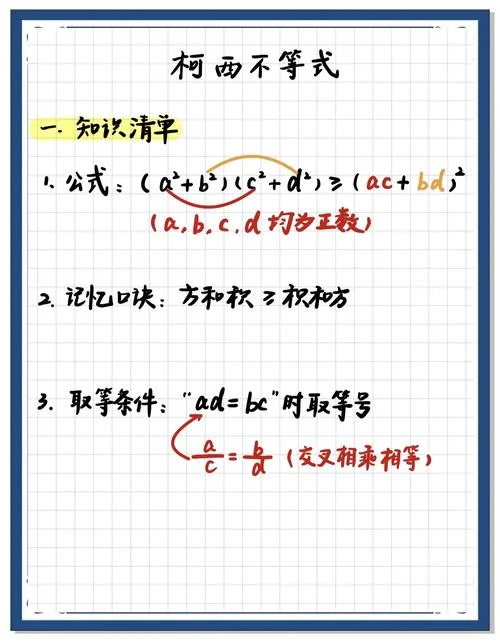 柯西不等式
一. 知识清单
1. 公式：(a²+b²)(c²+d²)≥(ac+bd)²
(a,b,c,d均为正数)
2. 记忆口诀：方和积≥积和方
3. 取等条件："ad=bc"时取等号
a/c=b/d (交叉相乘相等)